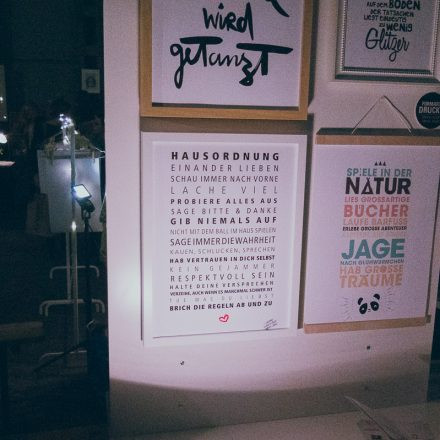 wird
getanzt
AUF DEM BODEN
DER TATSACHEN
LIEGT EINDEUTIG
ZU WENIG
Glitzer
HAUSORDNUNG
EINANDER LIEBEN
SCHAU IMMER NACH VORNE
LACHE VIEL
PROBIERE ALLES AUS
SAGE BITTE & DANKE
GIB NIEMALS AUF
NICHT MIT DEM BALL IM HAUS SPIELEN
SAGE IMMER DIE WAHRHEIT
KAUEN, SCHLUCKEN, SPRECHEN
HAB VERTRAUEN IN DICH SELBST
KEIN GEJAMMER
RESPEKTVOLL SEIN
HALTE DEINE VERSPRECHEN
VERZEIHE, AUCH WENN ES MANCHMAL SCHWER IST
TUE WAS DU LIEBST
BRICH DIE REGELN AB UND ZU
SPIELE IN DER
NATUR
LIES GROSSARTIGE
BÜCHER
LAUFE BARFUSS
ERLEBE GROSSE ABENTEUER
JAGE
NACH GLÜHWÜRMCHEN
HAB GROSSE
TRÄUME